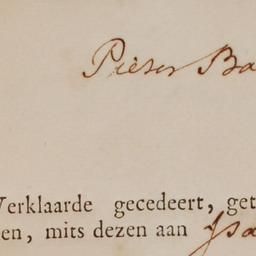 Pieter Ba
Verklaarde gecedeert, get
en, mits dezen aan Isa